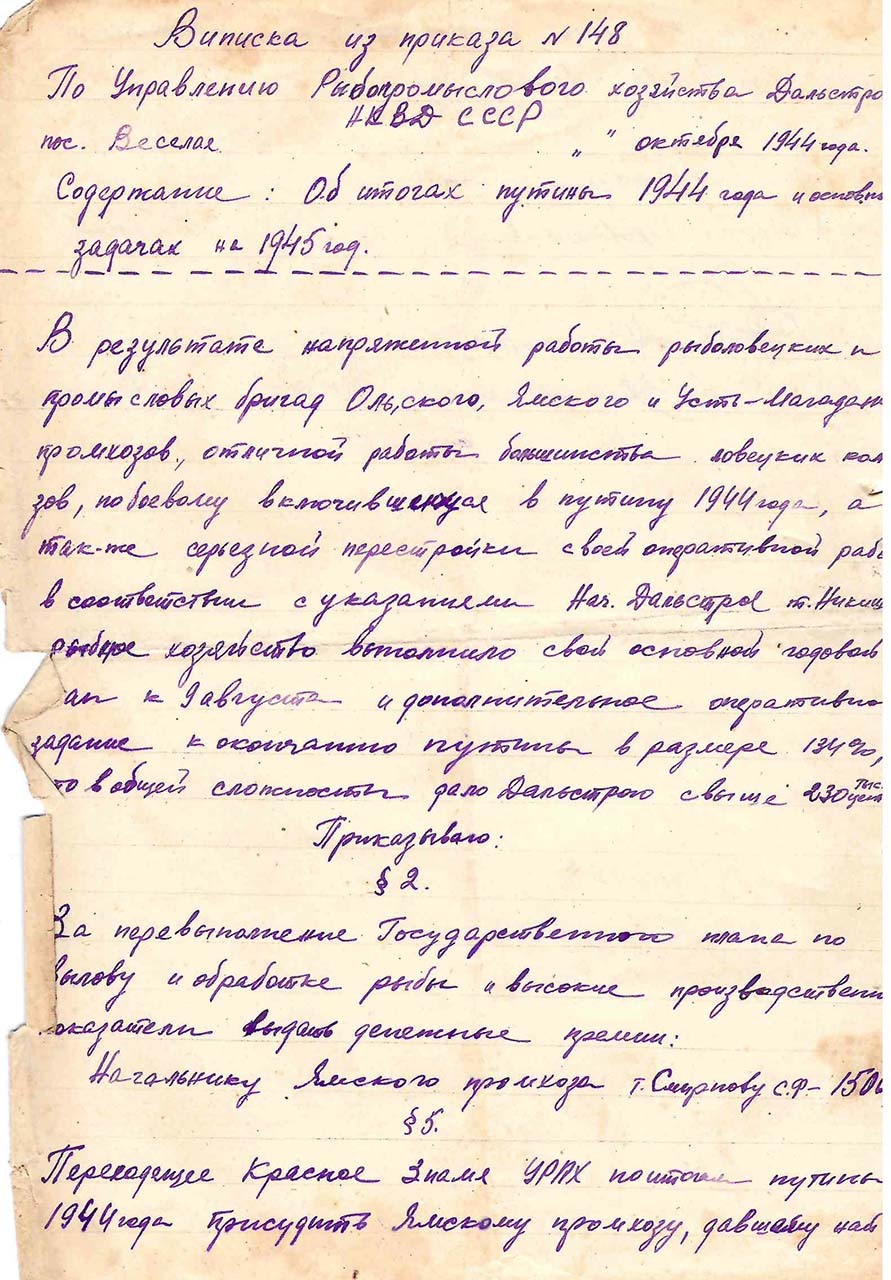 Виписка из приказа № 148
По Управлению Рыбопромыслового хозяйства Дальстро
НКВД СССР
пос. Веселая „ " октября 1944 года.
Содержание : Об итогах путины 1944 года и основны
задачах на 1945 год.
В результате напряженной работы рыболовецких и
промысловых бригад Ольского, Ямского и Усть-Магаданс
промхозов, отличной работы большинства ловецких кол
зов, побоевому включившихся в путину 1944 года, а
так-же серьезной перестройки своей оперативной рабо
в соответствии с указаниями Нач. Дальстроя т. Никиш
рыбное хозяйство выполнило свой основной годовой
ан к 9 августа и дополнительное оперативно
задание к окончанию путины в размере 134%,
то в общей сложности дало Дальстрою свыше 230 тыс. цент
Приказываю:
§ 2.
За перевыполнение Государственного плана по
вылову и обработке рыбы и высокие производственн
показатели выдать денежные премии:
Начальнику Ямского промхоза т. Смирнову С.Ф – 150
§ 5.
Переходящее Красное Знамя УРПХ по итогам путины
1944 года присудить Ямскому промхозу, давшему най